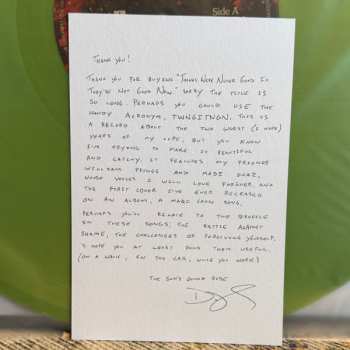 Side A
Thank you!
Thank you for buying "Things Were Never Good If
They're Not Good Now." Sorry the title is
so long. Perhaps you could use the
handy acronym, TWNGITNGN. This is
a record about the two worst (& more)
years of my life, but you know
I'm trying to make it beautiful
and catchy. It features my friends
William Prince and Madi Diaz,
whose voices I will love forever, and
the first cover I've ever released
on an album, a Marc Cohn song.
Perhaps you'll relate to the struggle
in these songs; the battle against
shame, the challenges of forgiving yourself.
I hope you at least find them useful.
(on a walk, in the car, while you work)
The sun's gonna rise